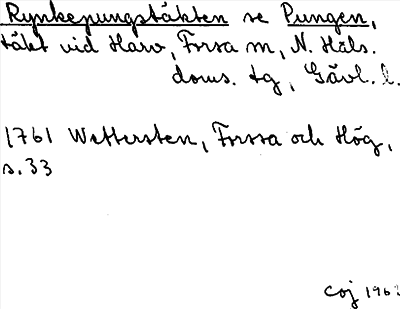 Rynkepungstäkten se Pungen,
täkt vid Harv, Forsa sn, N. Häls.
doms. tg, Gävl. l.
1761 Wettersten, Forssa och Hög,
s. 33
Coj 196